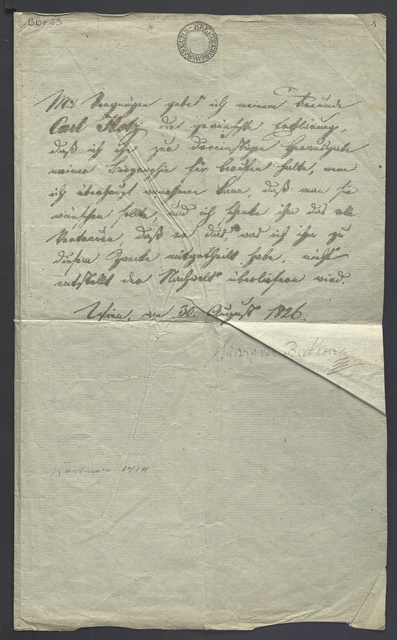 BBr 33
Mit Vergnügen gebe ich meinem Freunde
Carl Holz die gewünschte Erklärung,
daß ich ihn zur dereinstigen Herausgabe
meiner Biographie für berufen halte, wenn
ich überhaupt annehmen kann, daß man sie
wünschen sollte, und ich schenke ihm das volle
Vertrauen, daß er das, was ich ihm zu
diesem Zwecke mitgetheilt habe, nicht
entstellt der Nachwelt überliefern wird.
Wien, am 30. August 1826.
Beethoven